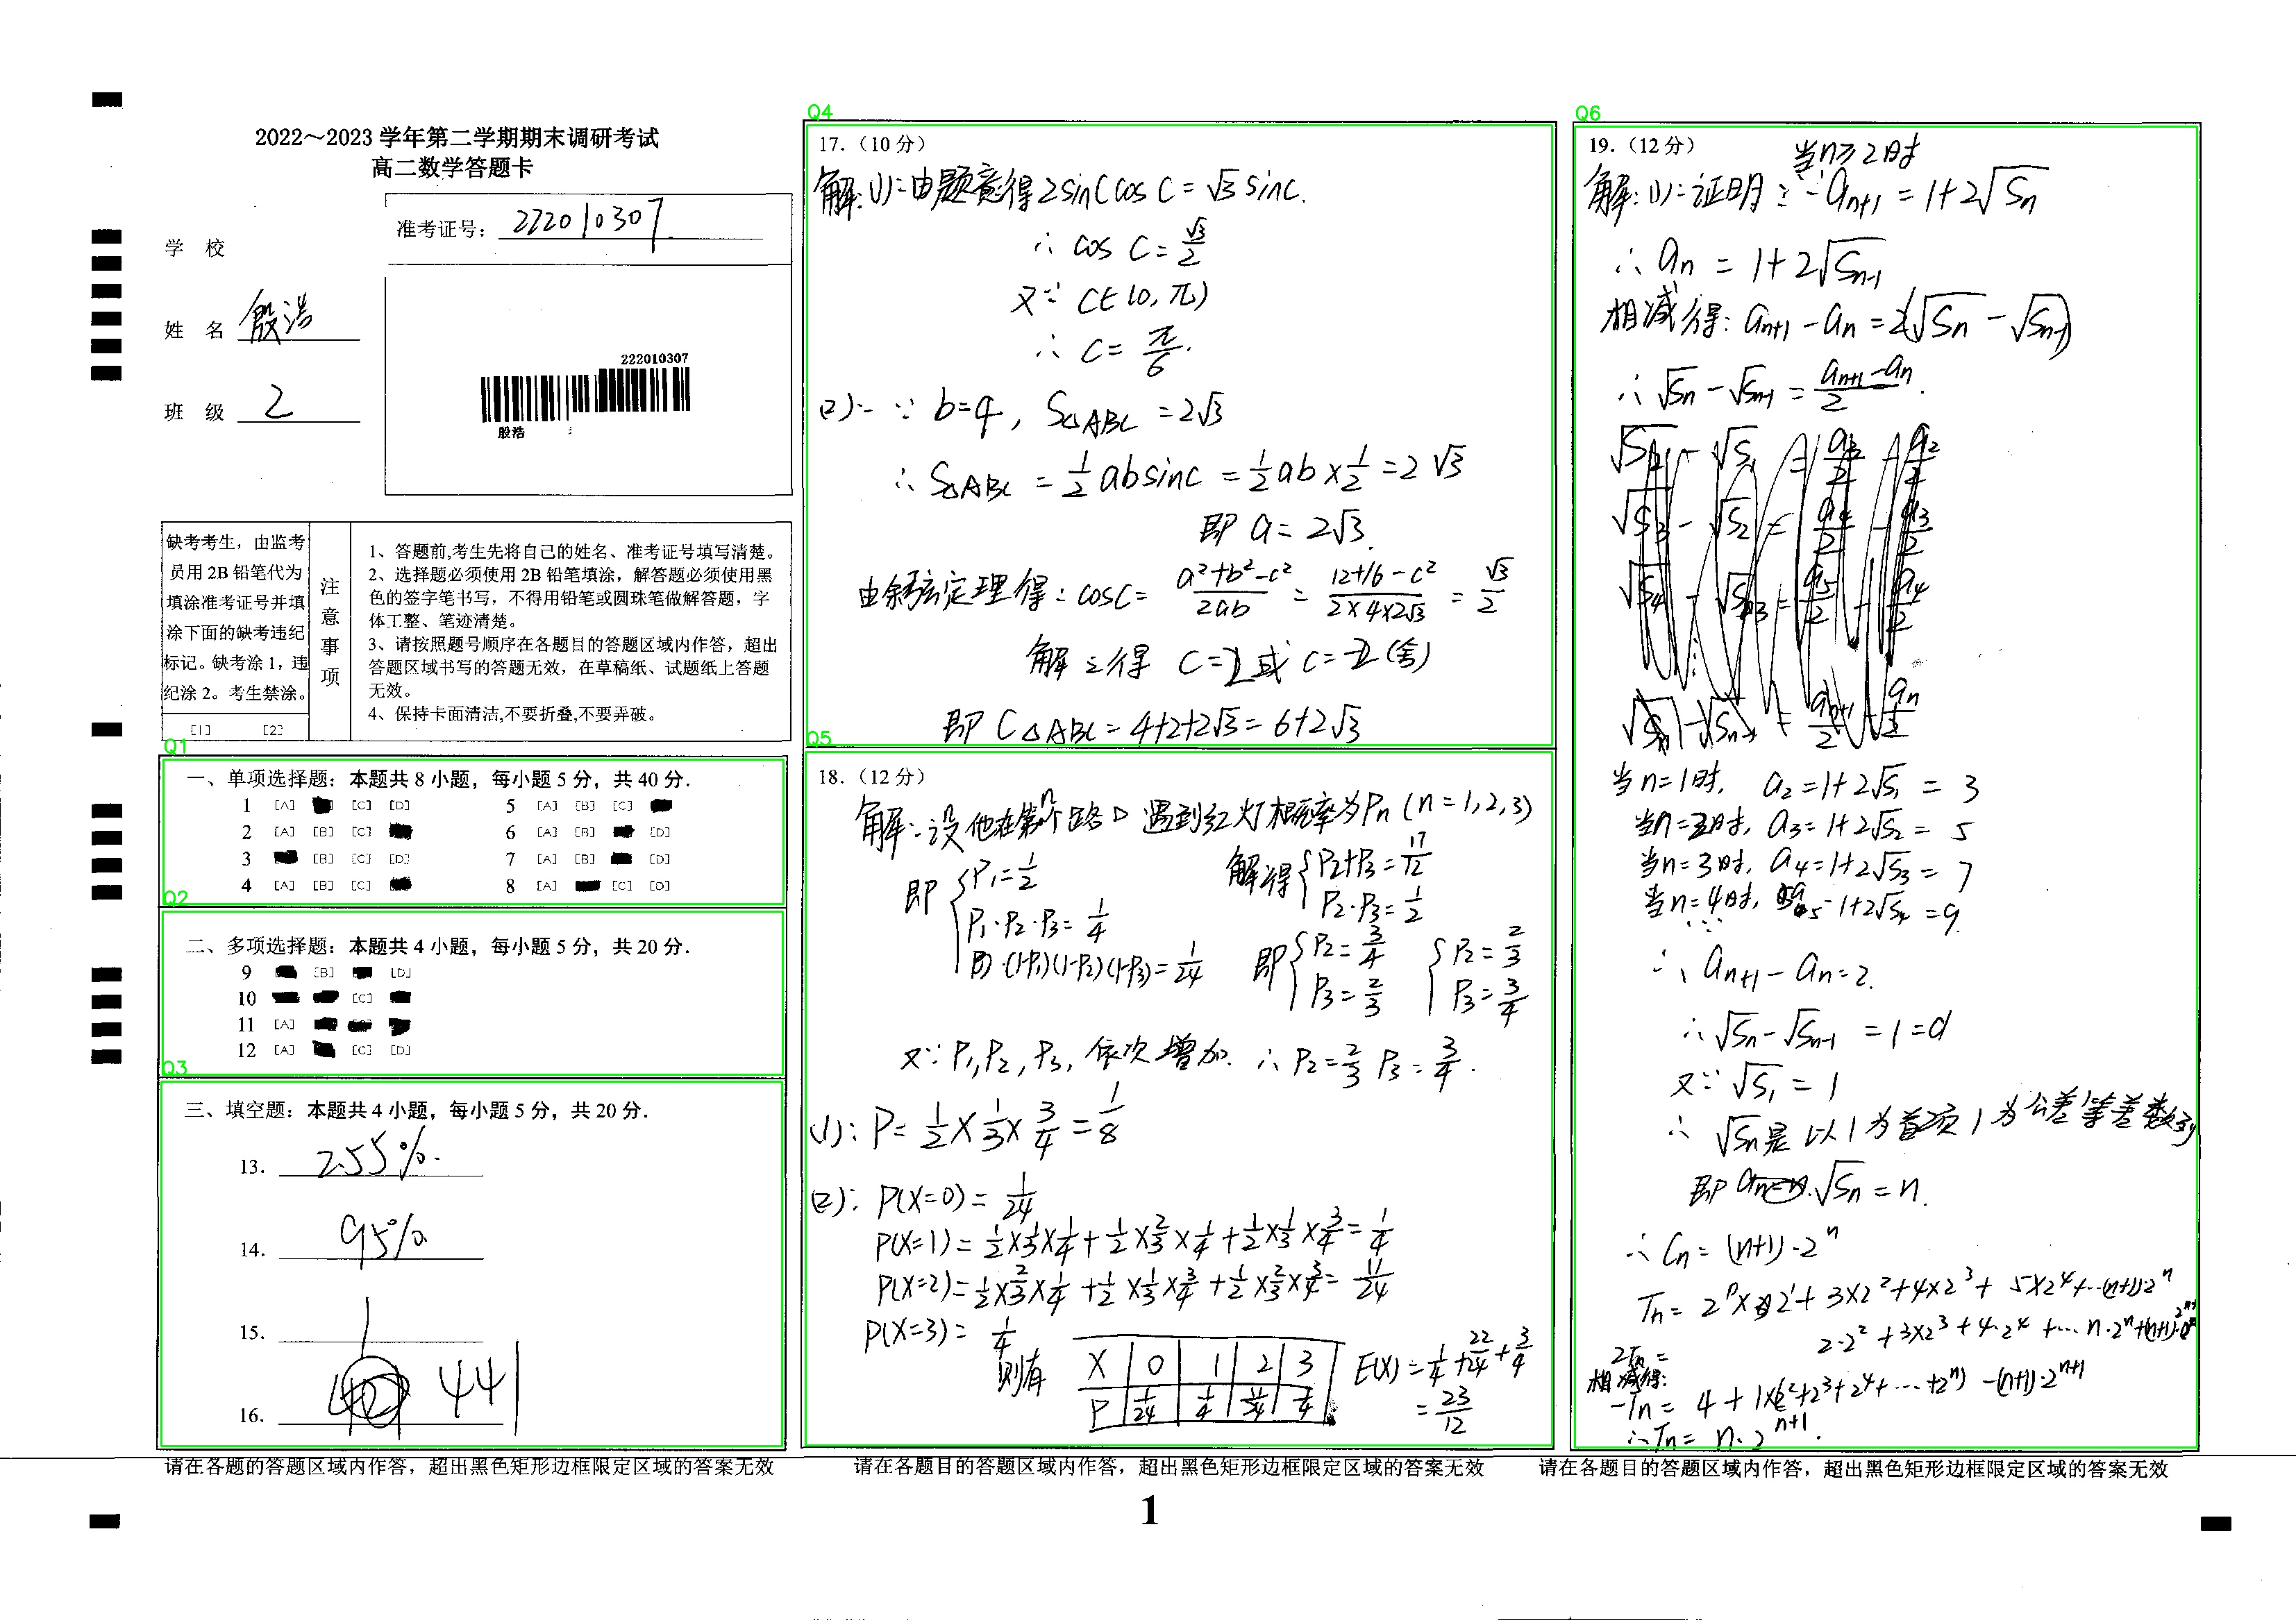 2022～2023 学年第二学期期末调研考试
高二数学答题卡
准考证号： 222010307
学 校
姓 名 殷浩
班 级 2
222010307
殷浩
缺考考生，由监考
员用 2B 铅笔代为
填涂准考证号并填
涂下面的缺考违纪
标记。缺考涂 1，违
纪涂 2。考生禁涂。
[1] [2]
注
意
事
项
1、答题前,考生先将自己的姓名、准考证号填写清楚。
2、选择题必须使用 2B 铅笔填涂，解答题必须使用黑
色的签字笔书写，不得用铅笔或圆珠笔做解答题，字
体工整、笔迹清楚。
3、请按照题号顺序在各题目的答题区域内作答，超出
答题区域书写的答题无效，在草稿纸、试题纸上答题
无效。
4、保持卡面清洁,不要折叠,不要弄破。
Q1
一、单项选择题：本题共 8 小题，每小题 5 分，共 40 分.
1 [A] [C] [D] 5 [A] [B] [C]
2 [A] [B] [C] 6 [A] [B] [D]
3 [B] [C] [D] 7 [A] [B] [D]
4 [A] [B] [C] 8 [A] [C] [D]
Q2
二、多项选择题：本题共 4 小题，每小题 5 分，共 20 分.
9 [B] [D]
10 [C]
11 [A]
12 [A] [C] [D]
Q3
三、填空题：本题共 4 小题，每小题 5 分，共 20 分.
13. 2.55%.
14. 95%
15. 1
16. 441
请在各题的答题区域内作答，超出黑色矩形边框限定区域的答案无效
Q4
17.（10 分）
解:(1):由题意得2sinCcosC=√3sinC.
∴ cosC=√3/2
又∵ C∈(0,π)
∴ C=π/6.
(2):∵ b=4, S△ABC=2√3
∴ S△ABC=1/2absinC=1/2ab×1/2=2√3
即 a=2√3.
由余弦定理得:cosC=(a²+b²-c²)/2ab=(12+16-c²)/(2×4×2√3)=√3/2
解之得 C=2或C=-2(舍)
即 C△ABC=4+2+2√3=6+2√3
Q5
18.（12 分）
解:设他在第n个路口遇到红灯概率为Pn(n=1,2,3)
即 { P₁=1/2
P₁·P₂·P₃=1/4
(1-P₁)(1-P₂)(1-P₃)=1/24
解得 { P₂+P₃=17/12
P₂·P₃=1/2
即 { P₂=3/4 { P₂=2/3
P₃=2/3 P₃=3/4
又∵P₁,P₂,P₃,依次增加. ∴P₂=2/3 P₃=3/4.
(1):P=1/2×1/3×3/4=1/8
(2):P(X=0)=1/24
P(X=1)=1/2×1/3×1/4+1/2×2/3×1/4+1/2×1/3×3/4=1/4
P(X=2)=1/2×2/3×1/4+1/2×1/3×3/4+1/2×2/3×3/4=11/24
P(X=3)=1/4
则有 X 0 1 2 3
P 1/24 1/4 11/24 1/4
E(X)=1/4+22/24+3/4
=23/12
请在各题目的答题区域内作答，超出黑色矩形边框限定区域的答案无效
Q6
19.（12 分）
当n≥2时
解:(1):证明:∵aₙ₊₁=1+2√Sₙ
∴aₙ=1+2√Sₙ₋₁
相减得:aₙ₊₁-aₙ=2(√Sₙ-√Sₙ₋₁)
∴√Sₙ-√Sₙ₋₁=(aₙ₊₁-aₙ)/2.
当n=1时, a₂=1+2√S₁=3
当n=2时, a₃=1+2√S₂=5
当n=3时, a₄=1+2√S₃=7
当n=4时, a₅=1+2√S₄=9.
∴aₙ₊₁-aₙ=2.
∴√Sₙ-√Sₙ₋₁=1=d
又∵√S₁=1
∴√Sₙ是以1为首项1为公差等差数列
即√Sₙ=n.
∴Cₙ=(n+1)·2ⁿ
Tₙ=2×2¹+3×2²+4×2³+5×2⁴+···(n+1)·2ⁿ
2Tₙ= 2·2²+3×2³+4·2⁴+···n·2ⁿ+(n+1)·2ⁿ⁺¹
相减得:
-Tₙ=4+1×(2²+2³+2⁴+···+2ⁿ)-(n+1)·2ⁿ⁺¹
∴Tₙ=n·2ⁿ⁺¹.
请在各题目的答题区域内作答，超出黑色矩形边框限定区域的答案无效
1